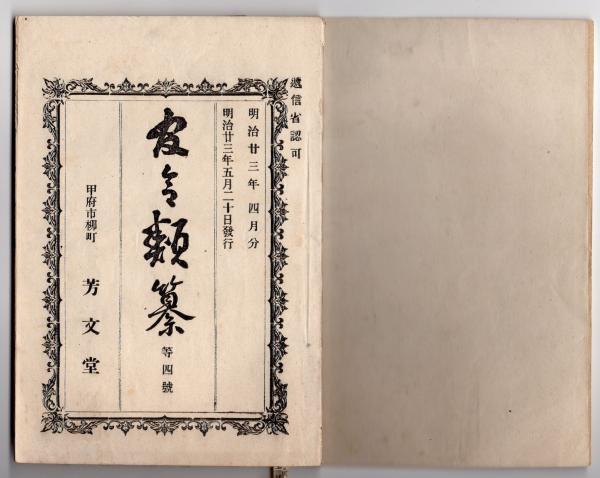 遞信省認可
明治廿三年 四月分
明治廿三年五月二十日發行
官令類纂
等四號
甲府市柳町
芳文堂